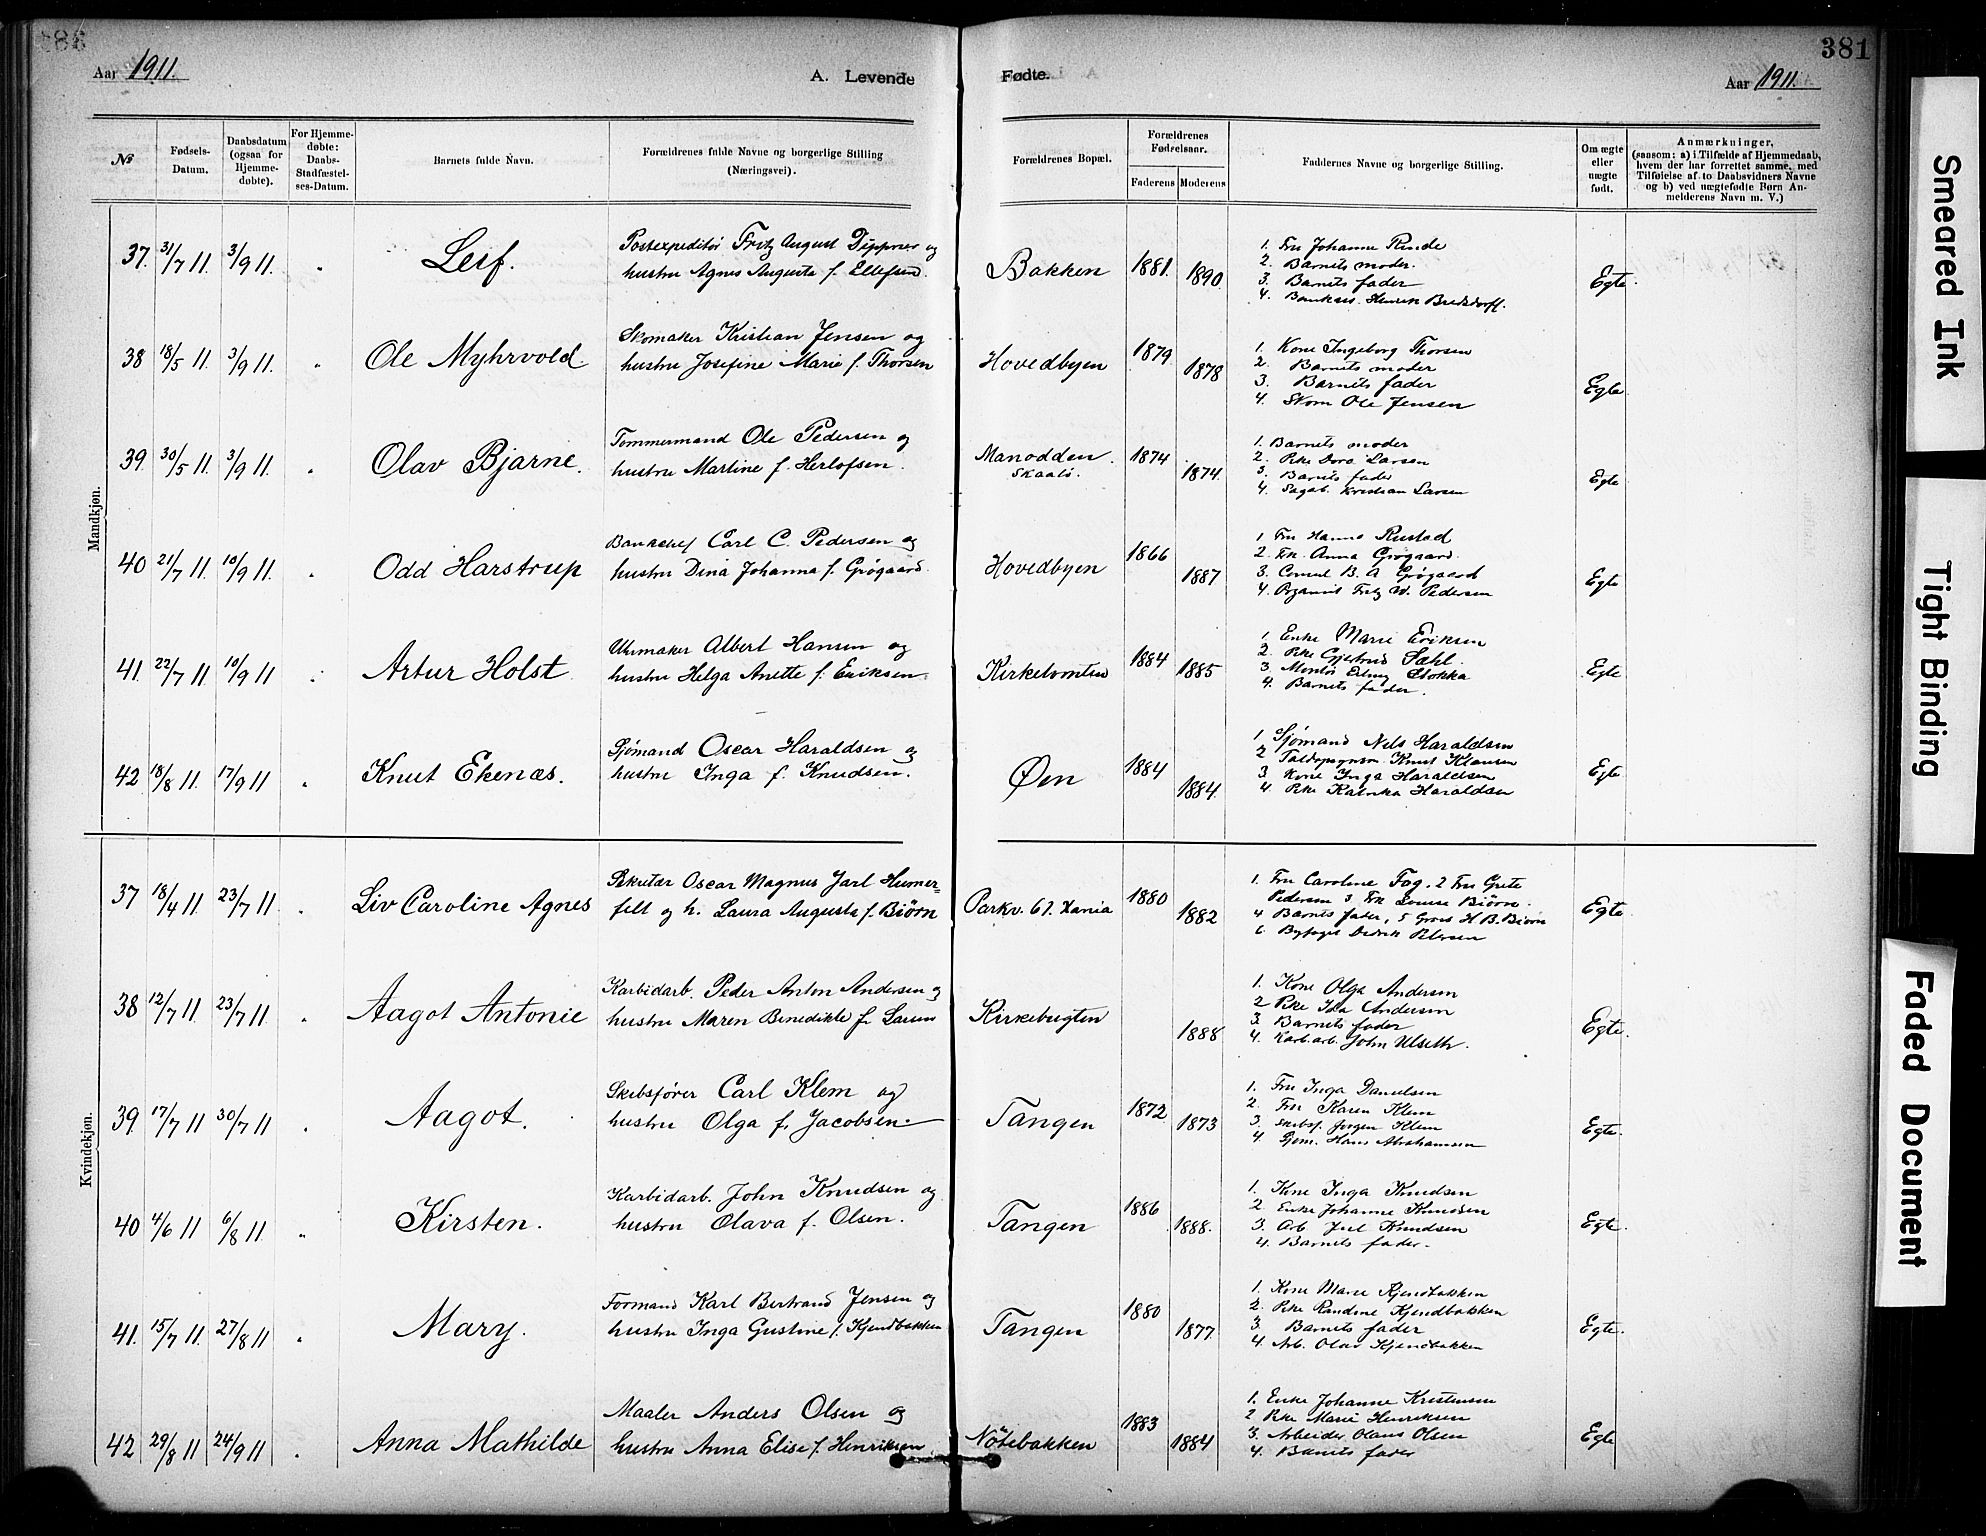 381
Aar 1911.
A. Levende
Fødte.
Aar 1911.
Smeared Ink
Tight Binding
Faded Document
№
Fødsels-
Datum.
Daabsdatum
(ogsaa for
Hjemme-
døbte).
For Hjemme-
døbte:
Daabs-
Stadfæstel-
ses-Datum.
Barnets fulde Navn.
Forældrenes fulde Navne og borgerlige Stilling
(Næringsvei).
Forældrenes Bopæl.
Forældrenes
Fødselsaar.
Faderens
Moderens
Faddernes Navne og borgerlige Stilling.
Om ægte
eller
uægte
født.
Anmærkninger,
(saasom: a) i Tilfælde af Hjemmedaab,
hvem der har forrettet samme, med
Tilføielse af to Daabsvidners Navne
og b) ved uægtefødte Børn An-
melderens Navn m. V.)
Mandkjøn.
37. 31/7 11. 3/9 11. Leif.
Postexpeditør Fritz August Dippner og
hustru Agnes Augusta f. Ellefsen.
Bakken 1881. 1890.
1. Fru Johanne Rinde
2. Barnets moder.
3. Barnets fader
4. Henrik Bredsdorff.
Egte.
38 18/5 11. 3/9 11. Ole Myhrvold
Skomaker Kristian Jensen og
hustru Josefine Marie f. Thorsen
Hovedbyen 1879 1878
1. Kone Ingeborg Thorsen
2. Barnets moder
3. Barnets fader
4. Skom Ole Jensen
Egte
39. 30/5 11. 3/9 11. Olav Bjarne.
Tømmermand Ole Pedersen og
hustru Martine f. Herlofsen.
Manodden.
Skaatø.
1874 1874.
1. Barnets moder
2. Pike Dora Larsen
3. Barnets fader
4. Sagab. Kristian Larsen
Egte
40 21/7 11. 10/9 11. Odd Harstrup
Bankchef Carl C. Pedersen og
hustru Dina Johanna f. Grøgaard.
Hovedbyen 1866 1887
1. Fru Hanna Rustad
2. Frk. Anna Grøgaard.
3. Consul B. A Grøgaard
4. Organist Fritz W. Pedersen
Egte
41. 22/7 11. 10/9 11. Artur Holst.
Urmaker Albert Hansen og
hustru Helga Anette f. Eriksen.
Kirketomten 1884 1885
1. Enke Marie Eriksen
2. Pike Gjertrud Dahl.
3. Stokka
4. Barnets fader.
Egte
42. 18/8 11. 17/9 11. Knut Ekenæs.
Sjømand Oscar Haraldsen og
hustru Inga f. Knudsen.
Øen 1884 1884.
1. Sjømand Nils Haraldsen
2 Knut Klausen
3. Kone Inga Haraldsen
4. Pike Katinka Haraldsen
Egte
Kvindekjøn.
37 18/4 11. 23/7 11. Liv Caroline Agnes
Sekretær Oscar Magnus Jarl Humer=
felt og h. Laura Augusta f. Biørn
Parkv. 67. Xania 1880 1882
1. Fru Caroline Fog. 2 Fru Grete
Pedersen 3 Frk Louise Biørn.
4 Barnets fader, 5 Gross H. B. Biørn
6 Byfoget Didrik Petersen
Egte
38 12/7 11 23/7 11. Aagot Antonie
Karbidarb. Peder Anton Andersen og
hustru Maren Benedikte f. Larsen
Kirkebugten 1888
1. Kone Olga Andersen
2 Pike Ida Andersen
3. Barnets fader
4. Karb.arb. John Ulseth.
Egte.
39. 17/7 11 30/7 11. Aagot.
Skibsfører Carl Klem og
hustru Olga f. Jacobsen.
Tangen 1872 1873
1. Fru Inga Danielsen
2. Fru Karen Klem
3. Skibsf. Jørgen Klem
4. Hans Abrahamsen
Egte.
40 4/6 11 6/8 11. Kirsten.
Karbidarb. John Knudsen og
hustru Olava f. Olsen.
Tangen 1886 1888.
1. Kone Inga Knudsen
2. Enke Johanne Knudsen
3. Arb Juel Knudsen
4. Barnets fader.
Egte.
41. 15/7 11. 27/8 11. Mary.
Formand Karl Bertrand Jensen og
hustru Inga Gustine f. Kjendbakken
Tangen 1880 1877.
1. Kone Marie Kjendbakken
2. Pike Randine Kjendbakken
3. Barnets fader
4. Arb. Olav Kjendbakken
Egte.
42 29/8 11 24/9 11. Anna Mathilde
Maaler Anders Olsen og
hustru Anna Elise f. Henriksen
Nøtebakken 1883 1884
1. Enke Johanne Kristensen
2 Pike Marie Henriksen
3. Arbeider Olaus Olsen
4. Barnets fader
Egte